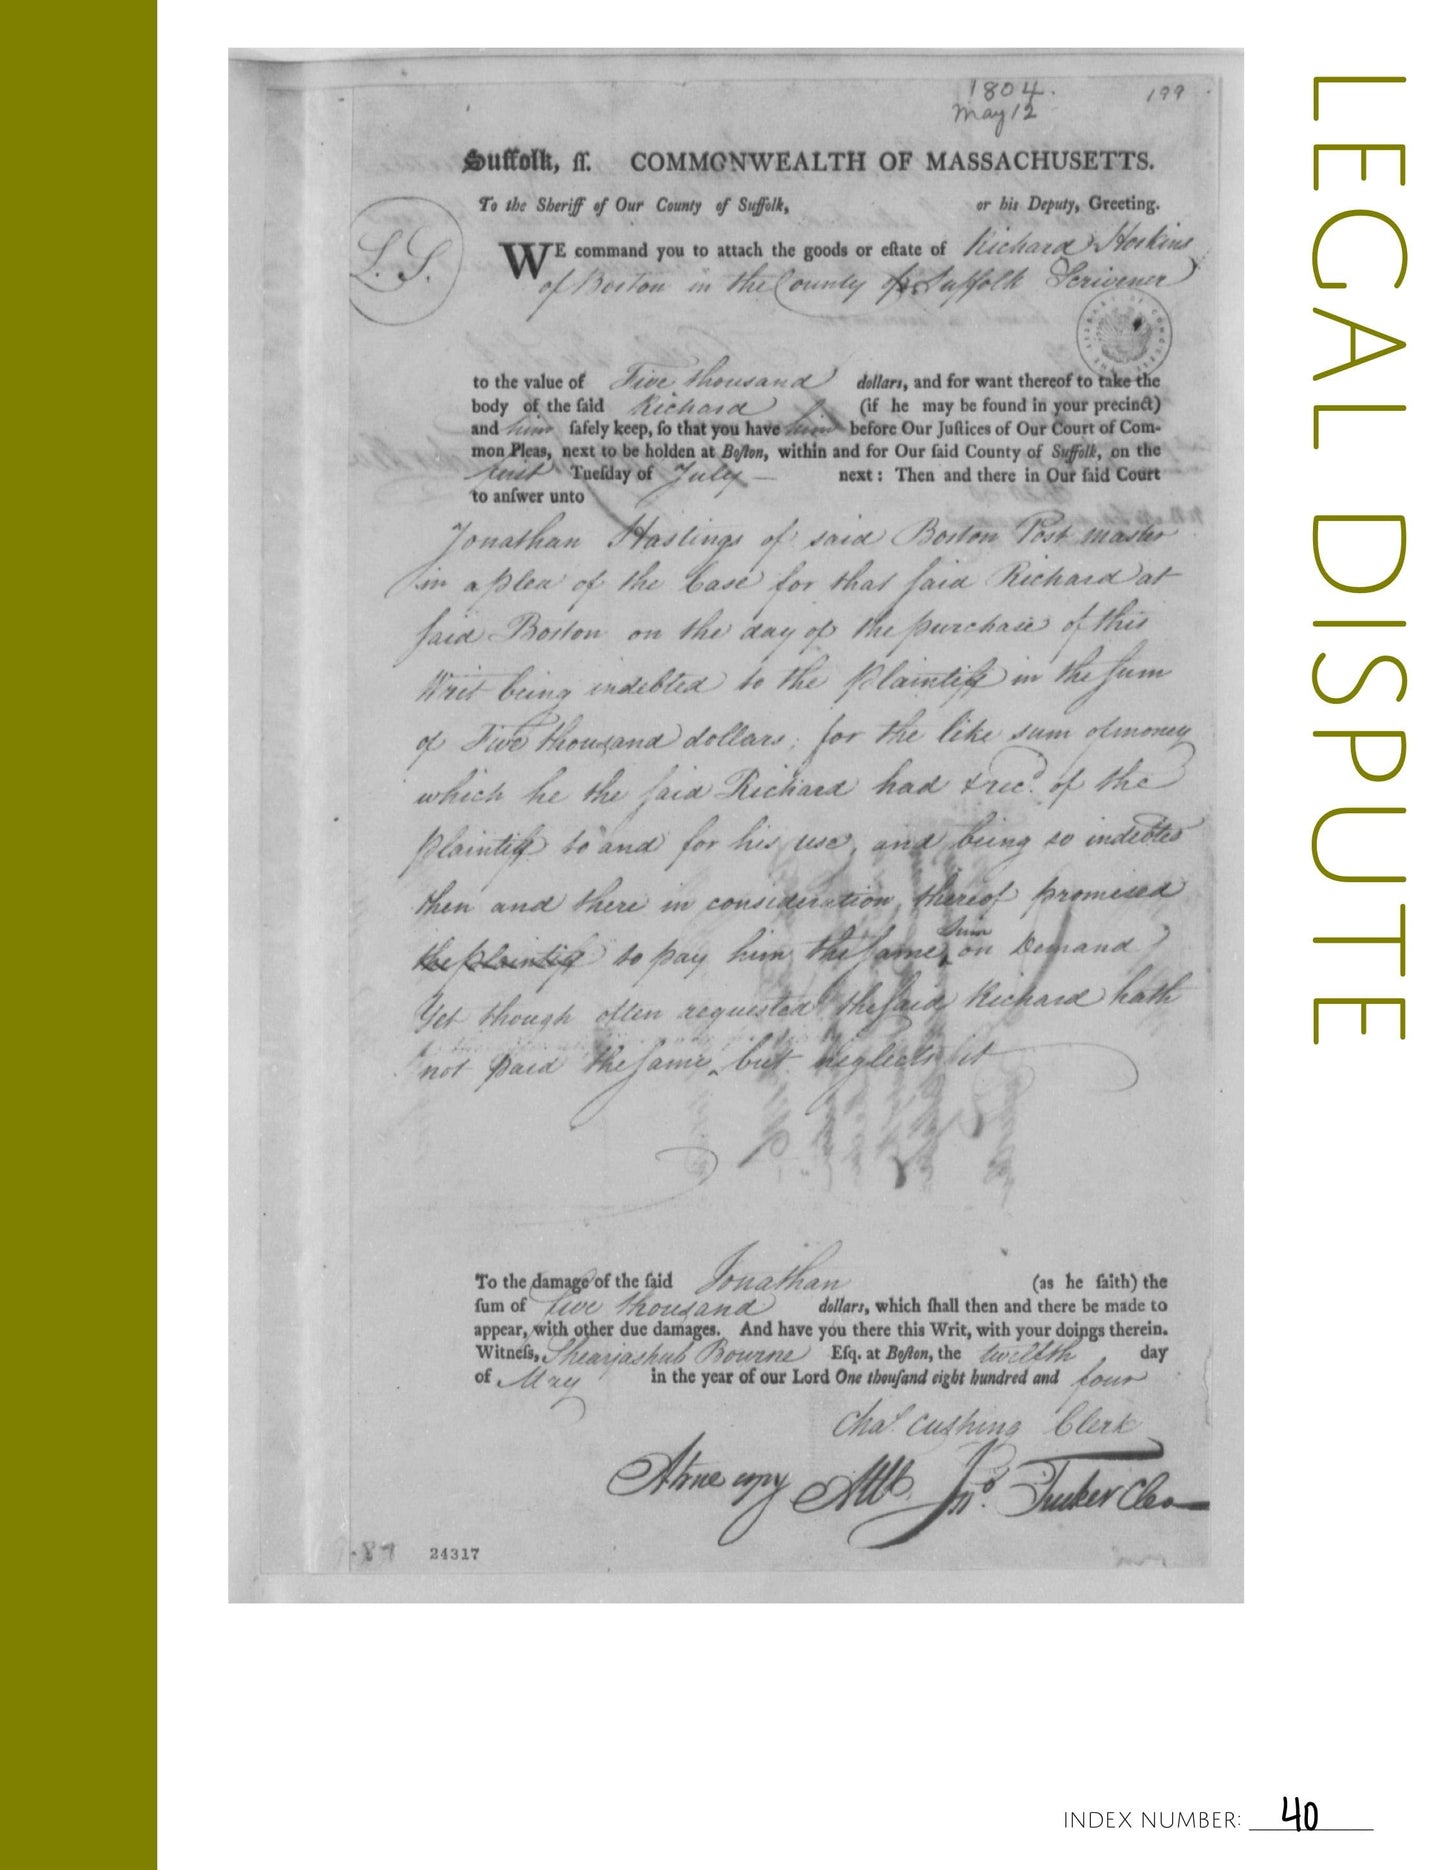 LEGAL DISPUTE
1804.
May 12
199
Suffolk, ſſ. COMMONWEALTH OF MASSACHUSETTS.
To the Sheriff of Our County of Suffolk, or his Deputy, Greeting.
L. S.
WE command you to attach the goods or eſtate of Richard Hoskins
of Boston in the County of Suffolk Scrivener
LIBRARY OF CONGRESS
to the value of Five thousand dollars, and for want thereof to take the
body of the ſaid Richard (if he may be found in your precinct)
and him ſafely keep, ſo that you have him before Our Juſtices of Our Court of Com-
mon Pleas, next to be holden at Boſton, within and for Our ſaid County of Suffolk, on the
first Tueſday of July next: Then and there in Our ſaid Court
to anſwer unto
Jonathan Hastings of said Boston Post master
in a plea of the Case for that ſaid Richard at
ſaid Boston on the day of the purchase of this
Writ being indebted to the Plaintiff in the ſum
of Five thousand dollars, for the like sum of money
which he the ſaid Richard had & recd. of the
plaintiff to and for his use, and being so indebted
then and there in consideration thereof promised
the plaintiff to pay him the ſame sum on Demand
Yet though often requested the ſaid Richard hath
not paid the ſame, but neglects it
To the damage of the ſaid Jonathan (as he ſaith) the
ſum of five thousand dollars, which ſhall then and there be made to
appear, with other due damages. And have you there this Writ, with your doings therein.
Witneſs, Shearjashub Bourne Eſq. at Boſton, the twelfth day
of May in the year of our Lord One thouſand eight hundred and four
Chas. Cushing Clerk
A true copy Att. Jno. Tucker Cler
24317
INDEX NUMBER: 40